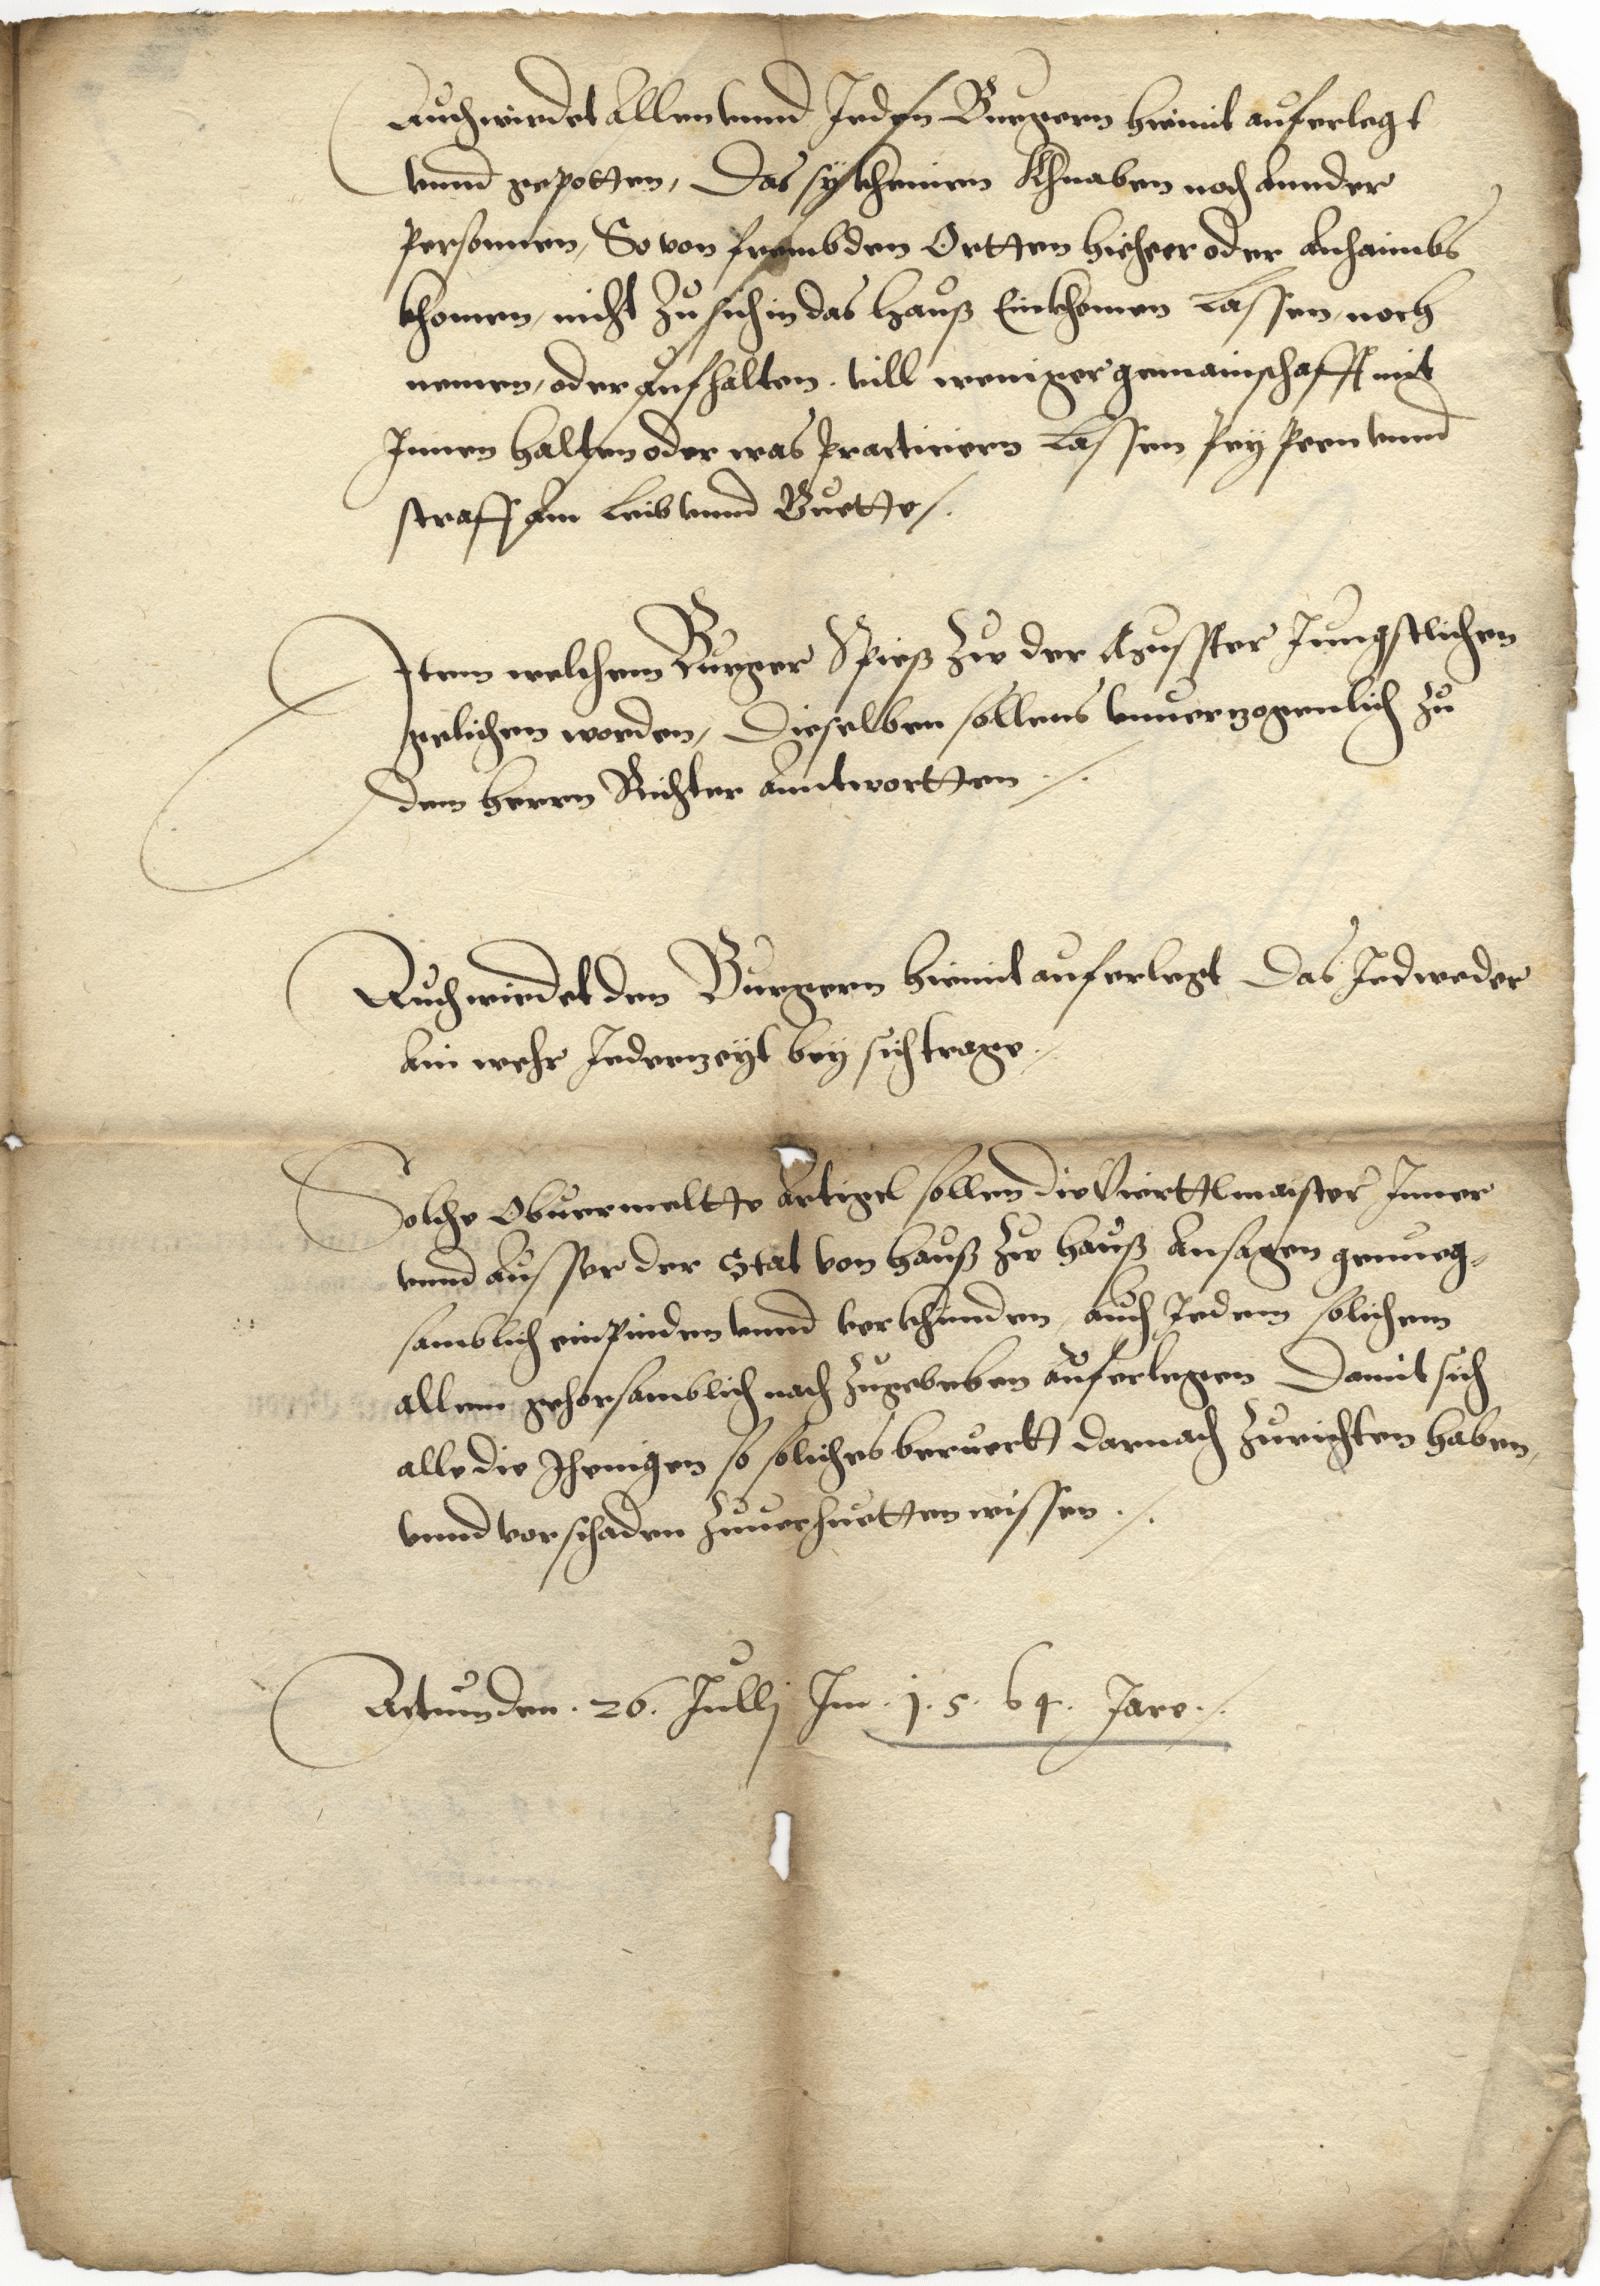 Auch wierdet Allen vnnd Jeden Burgern hiemit auferlegt
vnnd gepotten, Das sy khainen Khnaben noch Annder
Personnen, So von frembden Ortten hieheer oder Anhaimbs
khomen, nicht Zu sich in das Hauß Einkhomen Lassen, noch
nemen, oder aufhalten, vill weniger gemainschafft mit
Innen halten oder was Practiciern Lassen, Pey Peen vnnd
straff Am Leib vnnd Guette /.
Item welchem Burger Spieß Zw der Musster Jungstlichen
gelichen worden, Dieselben sollens vnuerzogenlich Zu
dem herrn Richter Anntwortten ./.
Auch wierdet den Burgern hiemit auferlegt Das Jedweder
Ain wehr Jederzeyt bey sich trage ./.
Solche Obuermeltte Artigel sollen die Viertlmaister Inner
vnnd Ausser der Stat von Hauß Zw Hauß Ansagen genueg-
samblich einPinden vnnd verkhunden, auch Jedem solichem
allem gehorsamblich nach Zugeleben auferlegen Damit sich
alle die Jhenigen so soliches beruertt darnach Zurichten haben,
vnnd vor schaden Zuuerhuetten wissen ./.
Actum den . 26. Jullj Im . j . 5 . 64 . Jare ./.